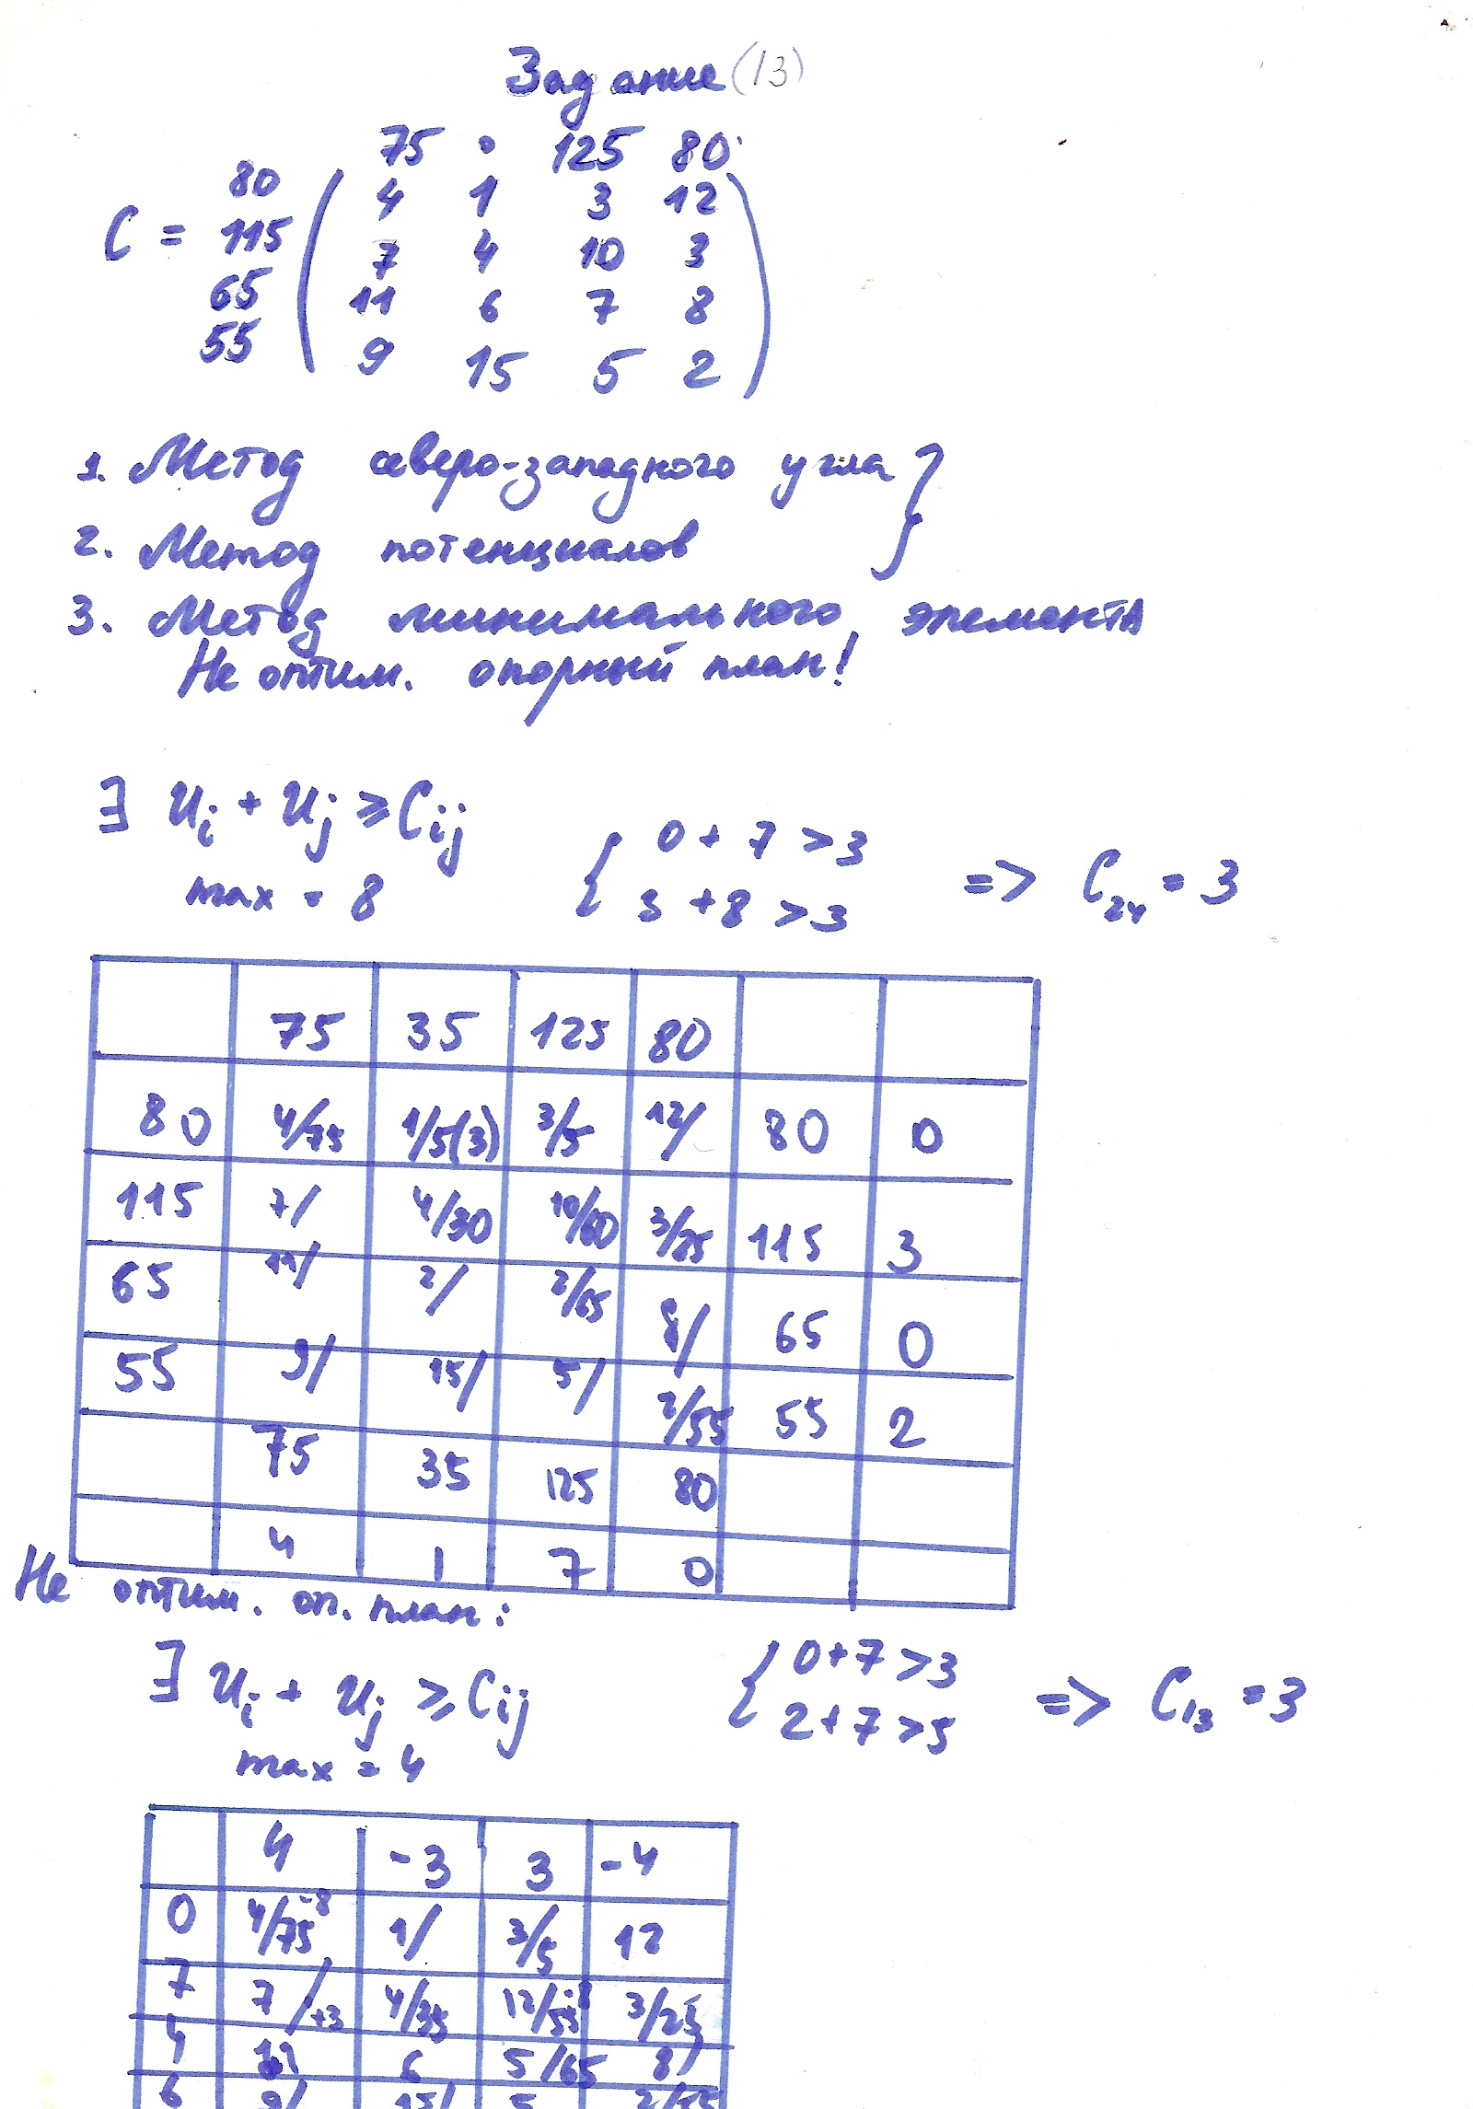 Задание (13)
75 · 125 80
80 4 1 3 12
C = 115 7 4 10 3
65 11 6 7 8
55 9 15 5 2
1. Метод северо-западного угла
2. Метод потенциалов
3. Метод минимального элемента
Не оптим. опорный план!
∃ Ui + Uj ≥ Cij
max = 8
{ 0 + 7 > 3
3 + 8 > 3
=> C24 = 3
75 35 125 80
80 4/75 1/5(3) 3/5 12/ 80 0
115 7/ 4/30 10/60 3/25 115 3
65 11/ 2/ 2/65 8/ 65 0
55 9/ 15/ 5/ 2/55 55 2
75 35 125 80
4 1 7 0
Не оптим. оп. план:
∃ Ui + Uj ≥ Cij
max = 4
{ 0+7 > 3
2+7 > 5
=> C13 = 3
4 -3 3 -4
0 4/75 -8 1/ 3/5 12
7 7/+3 4/35 12/55 -8 3/25
4 6 5/65 8/
6 9/ 15/ 5